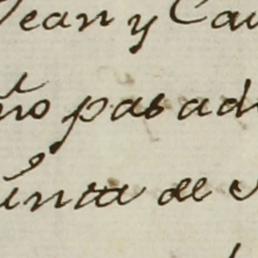 sean y Cau
no pasad
inta de